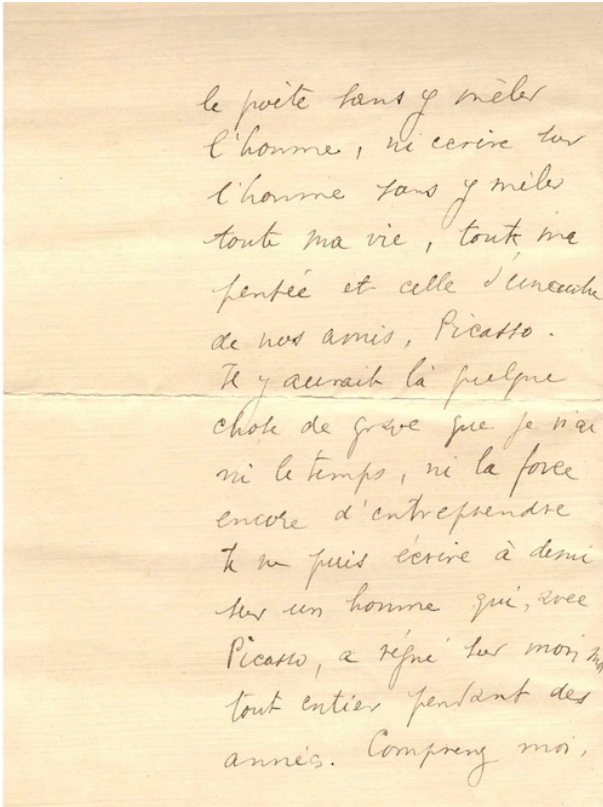 le poète sans y mêler
l'homme, ni ecrire sur
l'homme sans y mêler
toute ma vie, toute ma
pensée et celle d'un autre
de nos amis, Picasso.
Il y aurait là quelque
chose de grave que je n'ai
ni le temps, ni la force
encore d'entreprendre
Je ne puis écrire à demi
sur un homme qui, avec
Picasso, a régné sur mon moi
tout entier pendant des
années. Comprenez moi,